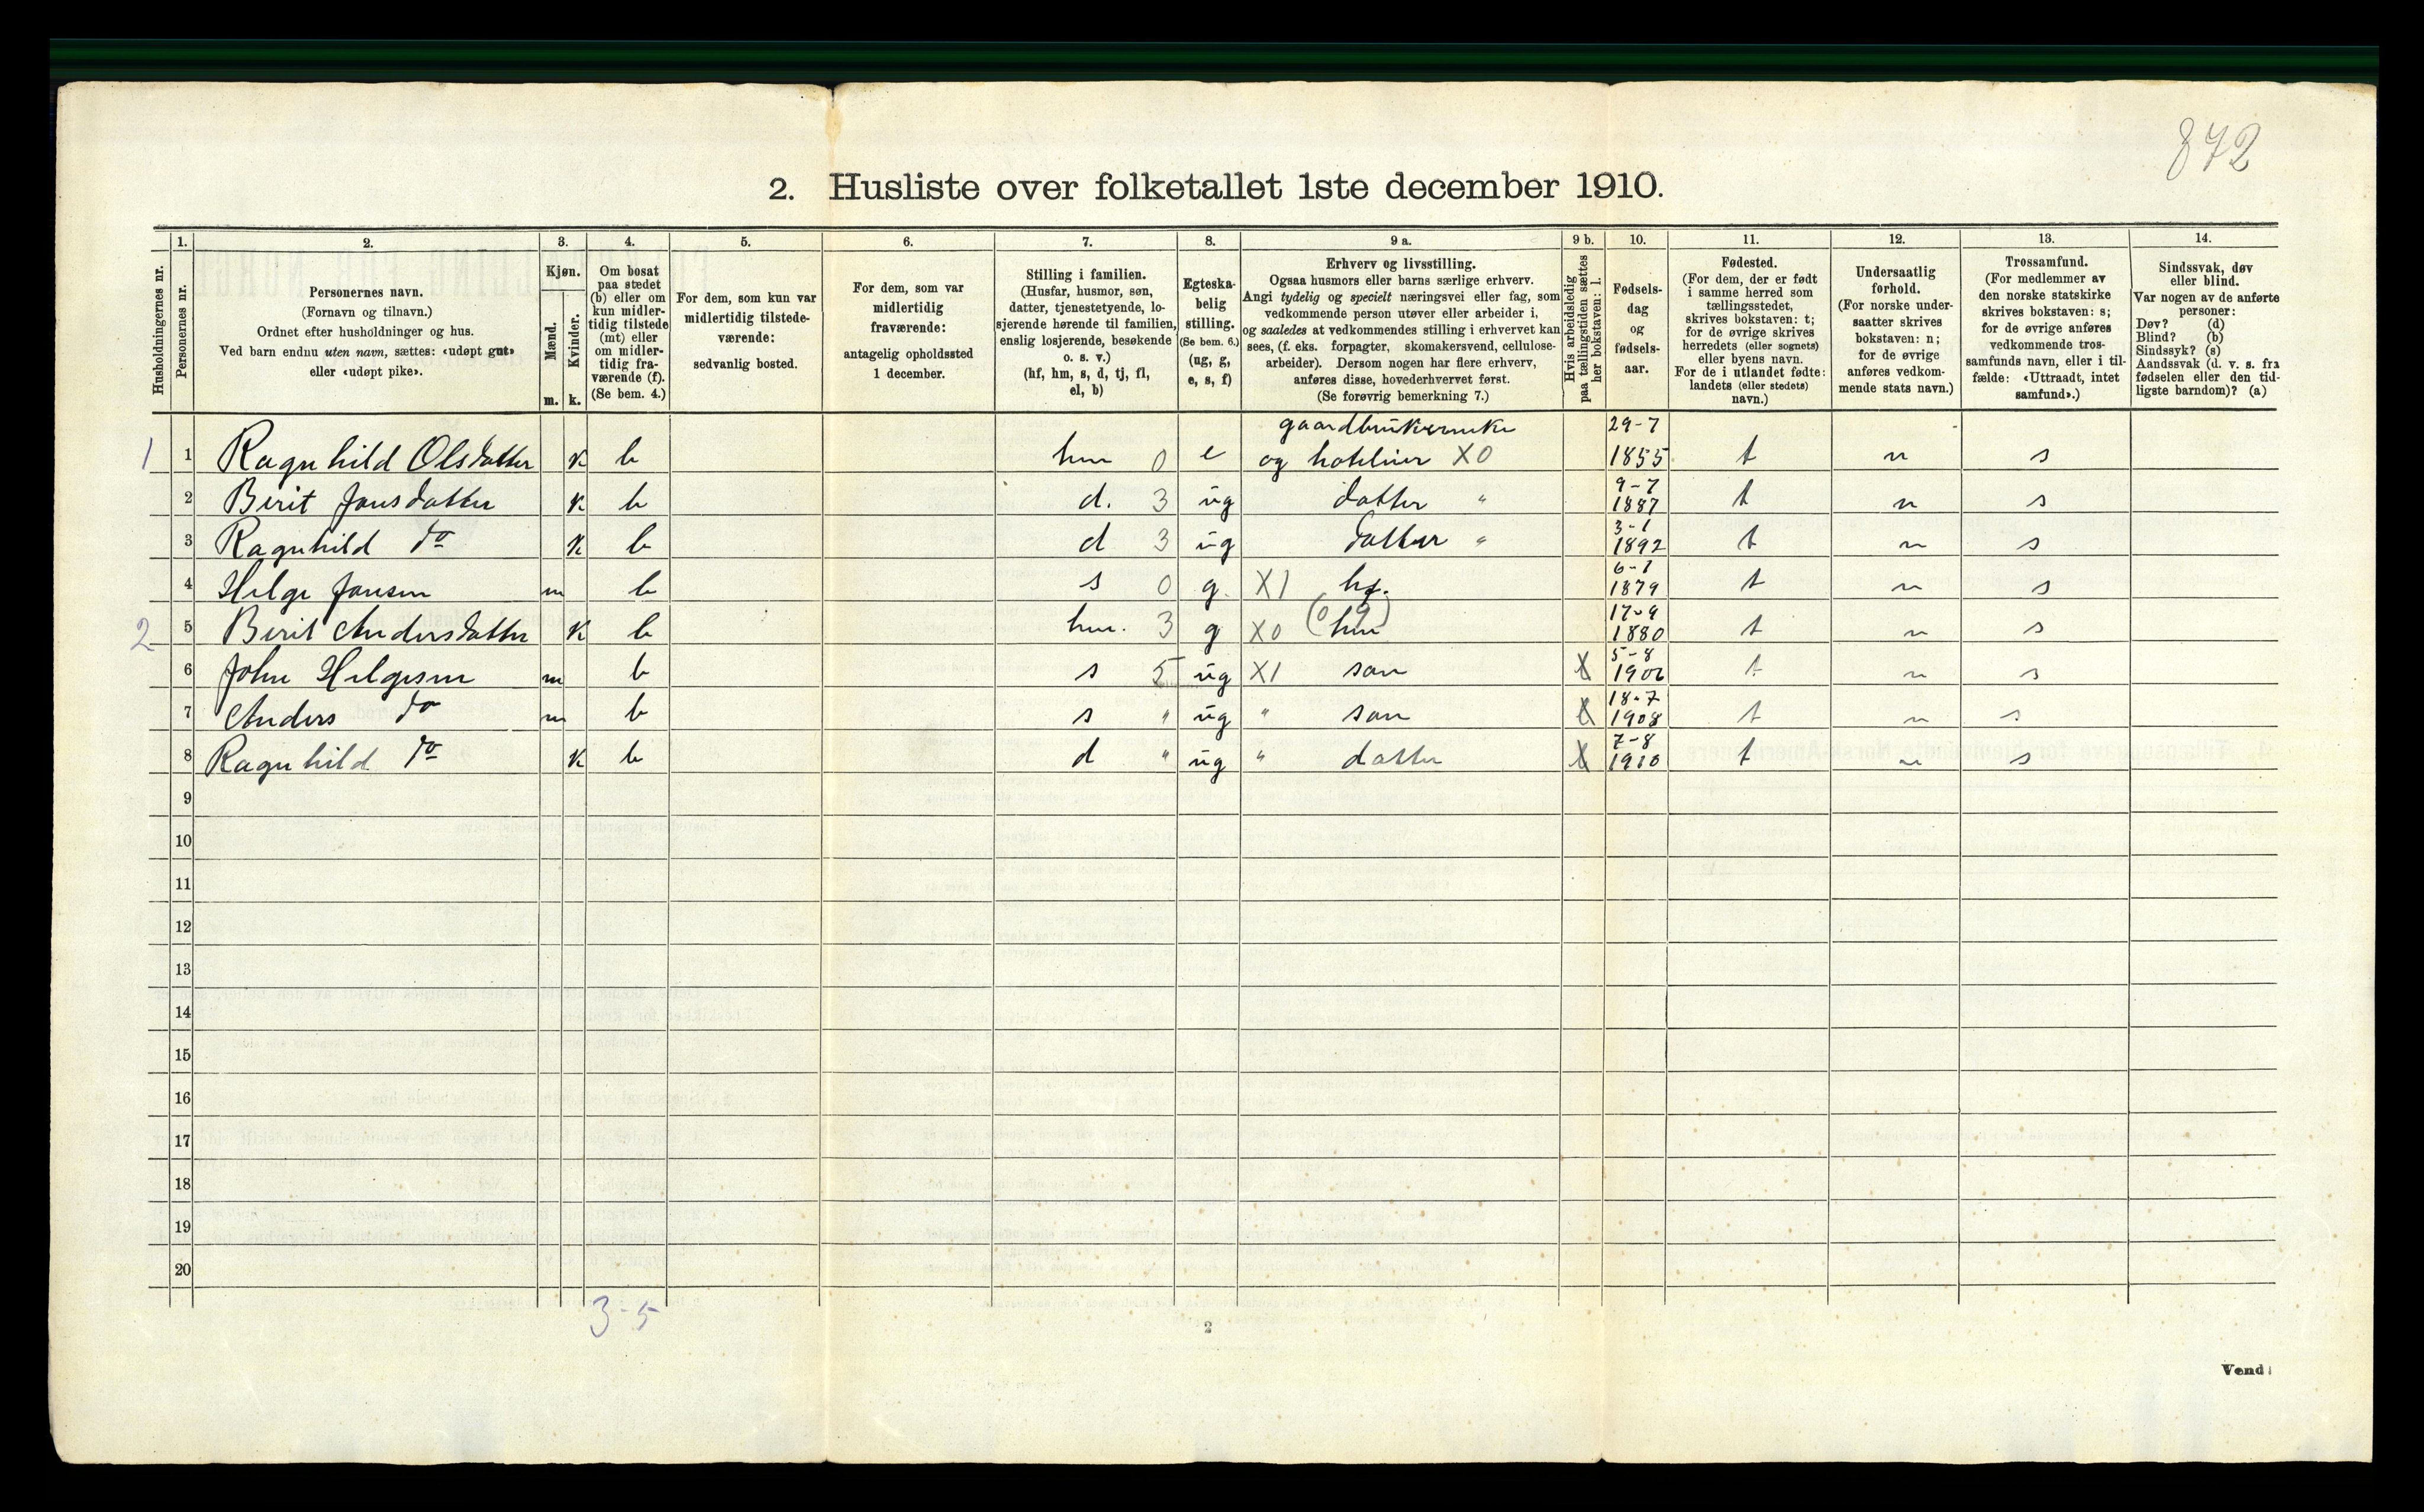 872
2. Husliste over folketallet 1ste december 1910.
Husholdningernes nr.
1.
Personernes nr.
2.
Personernes navn.
(Fornavn og tilnavn.)
Ordnet efter husholdninger og hus.
Ved barn endnu uten navn, sættes: «udøpt gut»
eller «udøpt pike».
3.
Kjøn.
Mænd.
Kvinder.
m. k.
4.
Om bosat
paa stedet
(b) eller om
kun midler-
tidig tilstede
(mt) eller
om midler-
tidig fra-
værende (f).
(Se bem. 4.)
5.
For dem, som kun var
midlertidig tilstede-
værende:
sedvanlig bosted.
6.
For dem, som var
midlertidig
fraværende:
antagelig opholdssted
1 december.
7.
Stilling i familien.
(Husfar, husmor, søn,
datter, tjenestetyende, lo-
sjerende hørende til familien,
enslig losjerende, besøkende
o. s. v.)
(hf, hm, s, d, tj, fl,
el, b)
8.
Egteska-
belig
stilling.
(Se bem. 6.)
(ug, g,
e, s, f)
9 a.
Erhverv og livsstilling.
Ogsaa husmors eller barns særlige erhverv.
Angi tydelig og specielt næringsvei eller fag, som
vedkommende person utøver eller arbeider i,
og saaledes at vedkommendes stilling i erhvervet kan
sees, (f. eks. forpagter, skomakersvend, cellulose-
arbeider). Dersom nogen har flere erhverv,
anføres disse, hovederhvervet først.
(Se forøvrig bemerkning 7.)
9 b.
Hvis arbeidsledig
paa tællingstiden sættes
her bokstaven: l.
10.
Fødsels-
dag
og
fødsels-
aar.
11.
Fødested.
(For dem, der er født
i samme herred som
tællingsstedet,
skrives bokstaven: t;
for de øvrige skrives
herredets (eller sognets)
eller byens navn.
For de i utlandet fødte:
landets (eller stedets)
navn.)
12.
Undersaatlig
forhold.
(For norske under-
saatter skrives
bokstaven: n;
for de øvrige
anføres vedkom-
mende stats navn.)
13.
Trossamfund.
(For medlemmer av
den norske statskirke
skrives bokstaven: s;
for de øvrige anføres
vedkommende tros-
samfunds navn, eller i til-
fælde: «Uttraadt, intet
samfund».)
14.
Sindssvak, døv
eller blind.
Var nogen av de anførte
personer:
Døv? (d)
Blind? (b)
Sindssyk? (s)
Aandssvak (d. v. s. fra
fødselen eller den tid-
ligste barndom)? (a)
gaardbrukerenke 29-7
1 1 Ragnhild Olsdatter k b hm 0 e og hotelier X0 1855 t n s
9-7
2 Birit Jonsdatter k b d. 3 ug datter " 1887 t n s
3-1
3 Ragnhild do k b d 3 ug datter " 1892 t n s
6-1
4 Helge Jonsen m b s 0 g. X1 hf. 1879 t n s
17-9
2 5 Birit Andersdatter k b hm. 3 g X0 hm 1880 t n s
5-8
6 John Helgesen m b s 5 ug X1 søn 1906 t n s
18-7
7 Anders do m b s " ug " søn 1908 t n s
7-8
8 Ragnhild do k b d " ug " datter 1910 t n s
9
10
11
12
13
14
15
16
17
18
19
20
3-5
2
Vend!